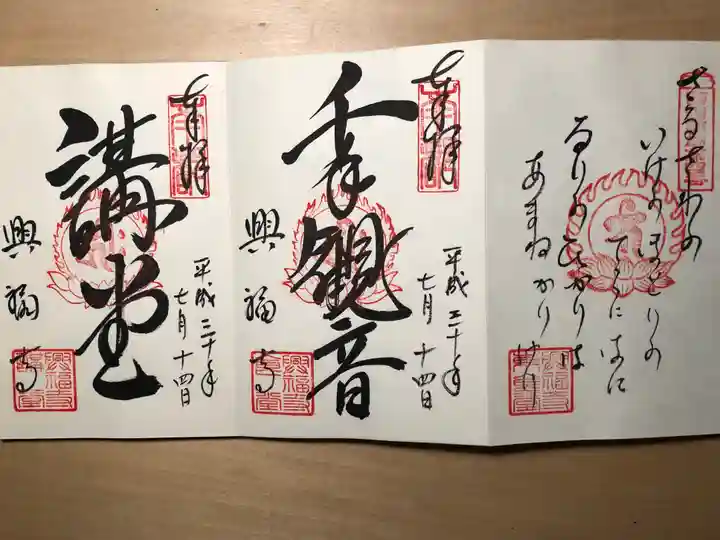 さるさわの
いけのほとりの
てらにはに
るりのひかりは
あまねかりけり
奉拝
平成三十年
七月十四日
千手観音
興福寺
奉拝
平成三十年
七月十四日
講堂
興福寺